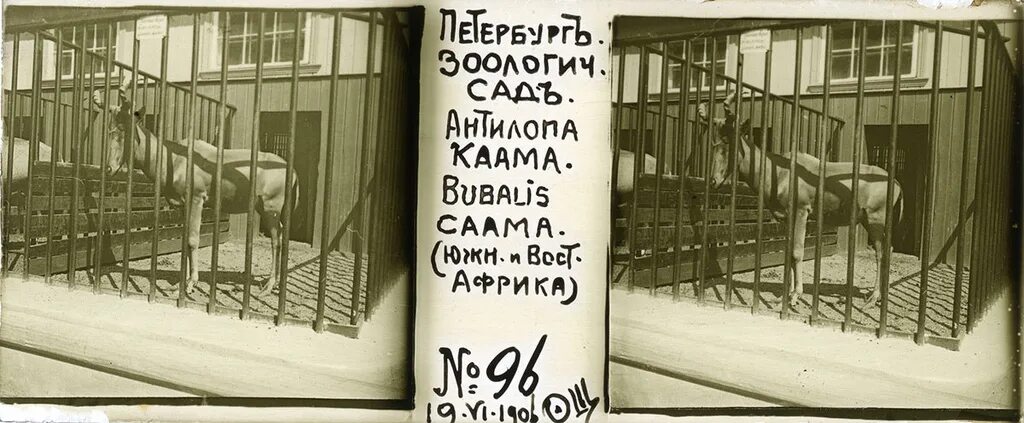 ПЕТЕРБУРГЪ.
ЗООЛОГИЧ.
САДЪ.
АНТИЛОПА
КААМА.
BUBALIS
CAAMA.
(ЮЖН. И ВОСТ.
АФРИКА)
№ 96
19.VI.1906